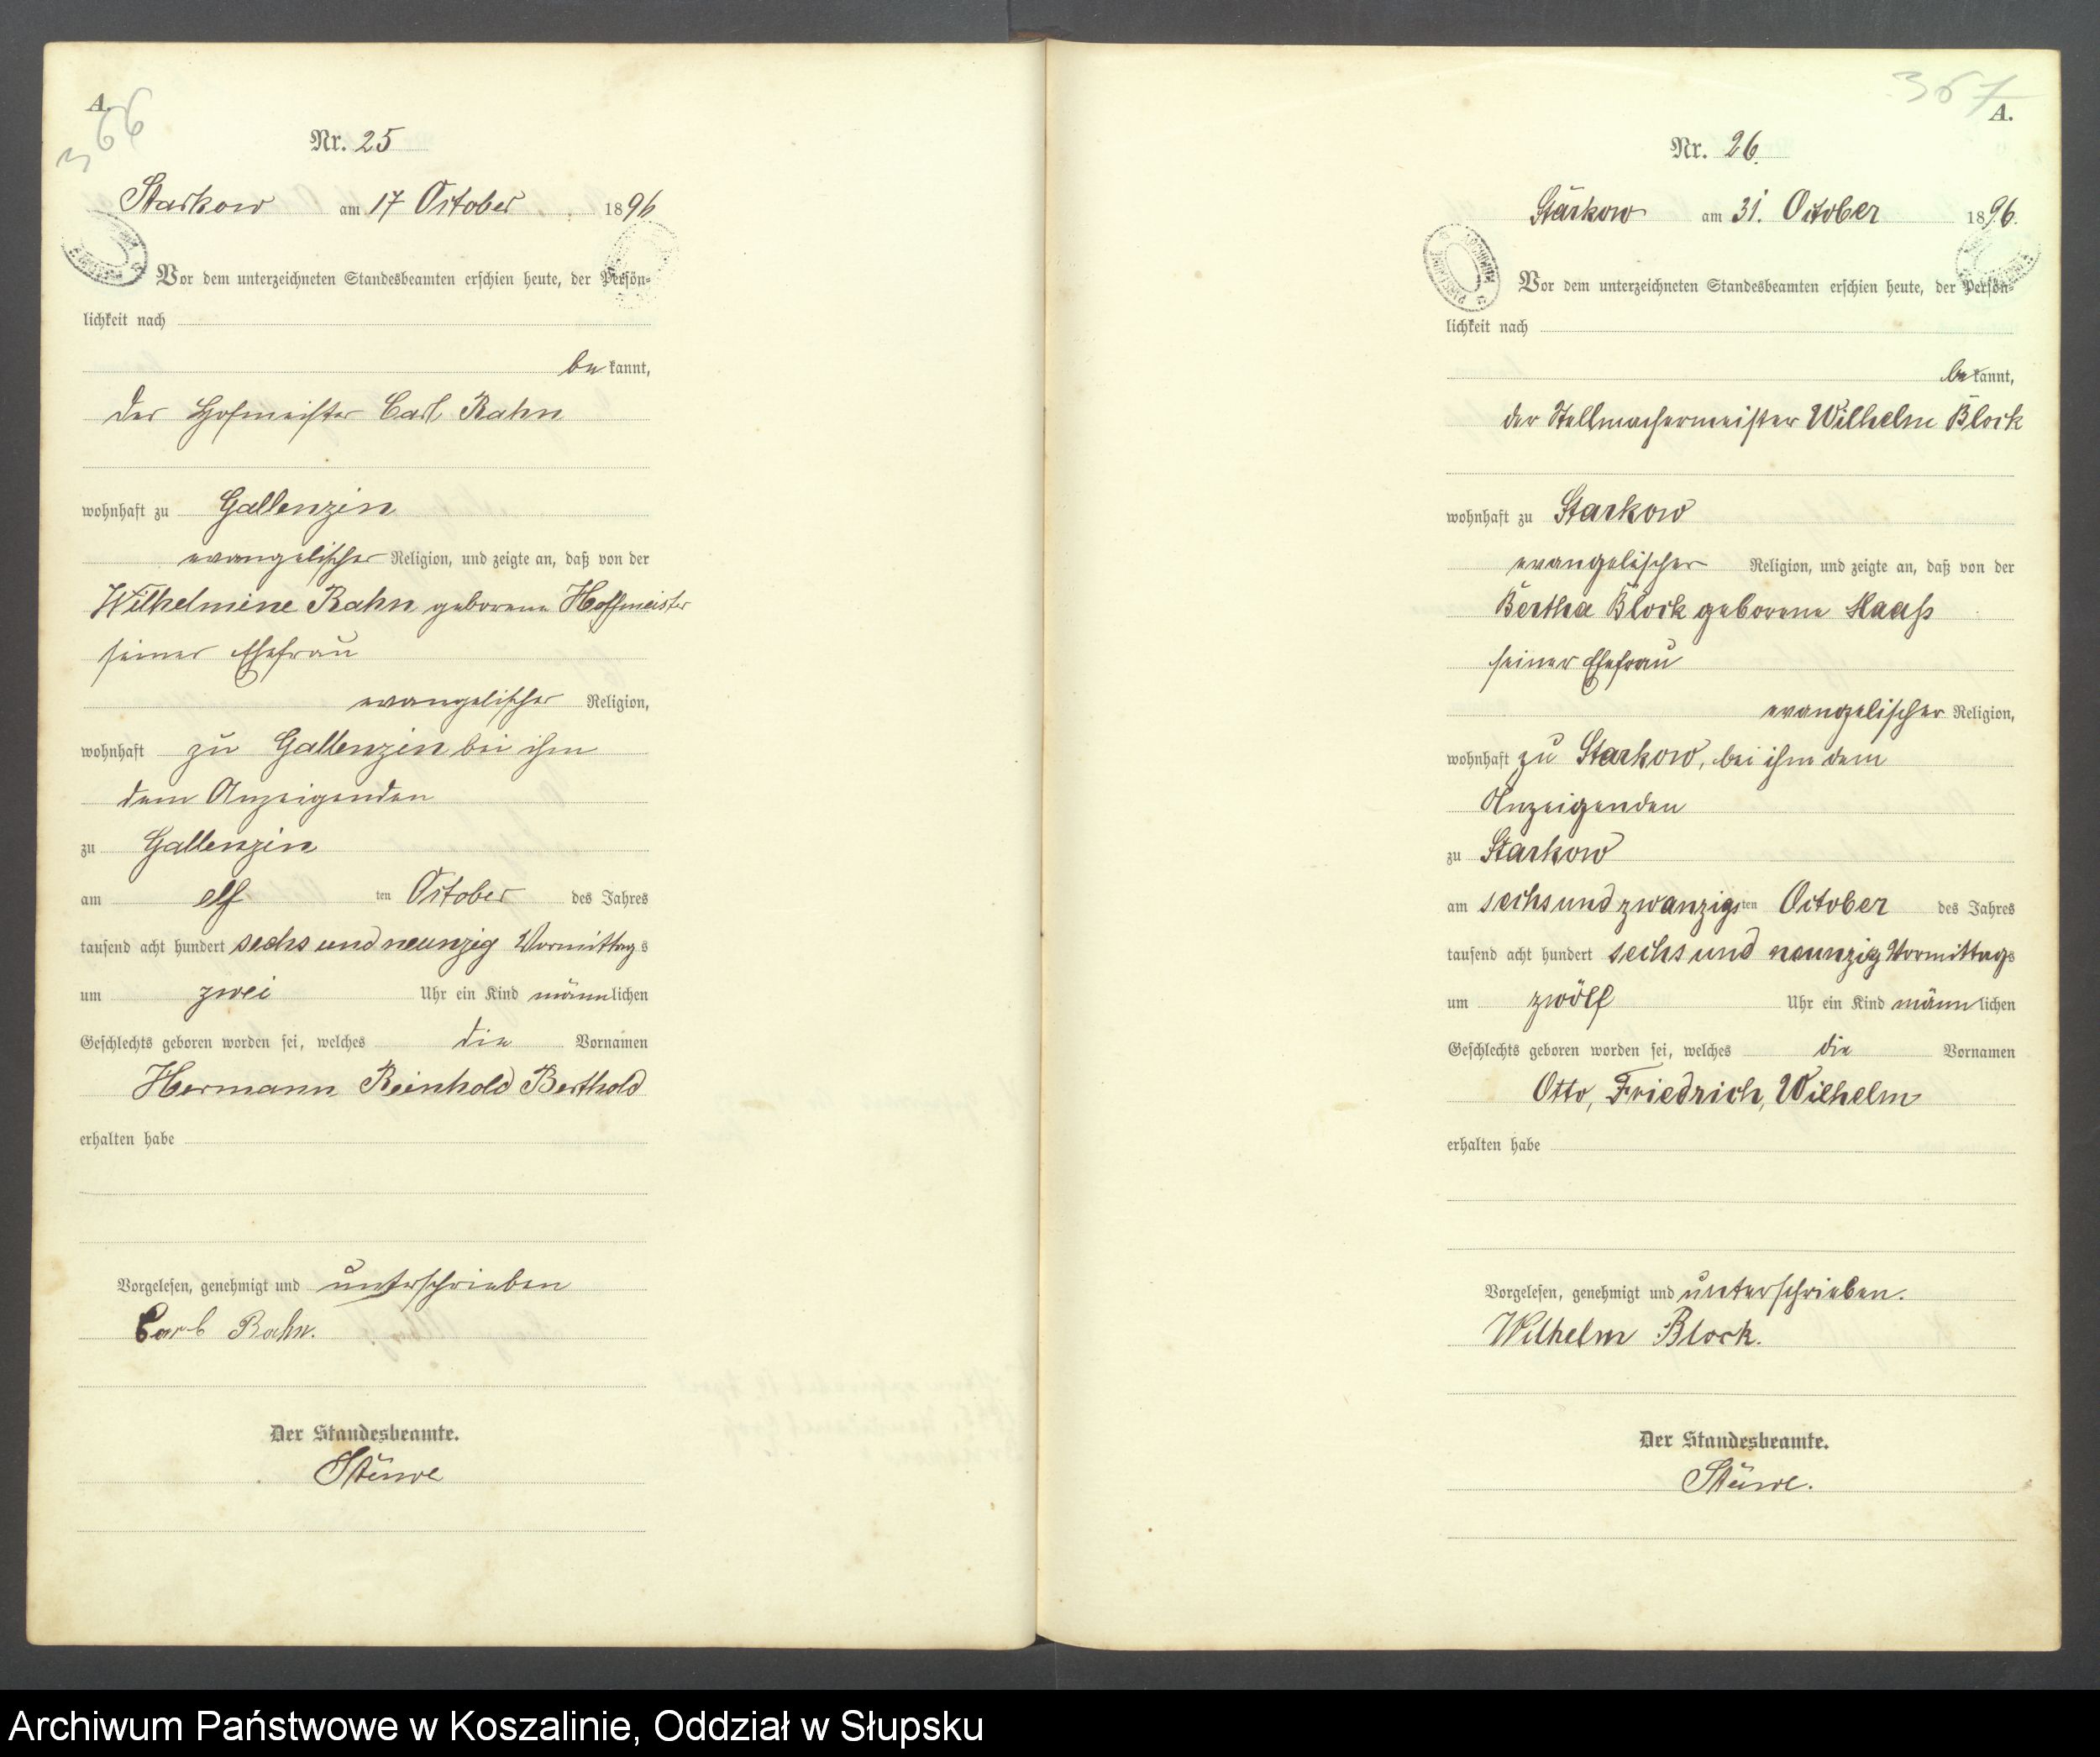 A.
366
Nr. 25
Starkow am 17 October 1896
Vor dem unterzeichneten Standesbeamten erschien heute, der Persön-
lichkeit nach
bekannt,
der Hofmeister Carl Rahn
wohnhaft zu Gallenzin
evangelischer Religion, und zeigte an, daß von der
Wilhelmine Rahn geborene Hoffmeister
seiner Ehefrau
evangelischer Religion,
wohnhaft zu Gallenzin bei ihm
dem Anzeigenden
zu Gallenzin
am elf ten October des Jahres
tausend acht hundert sechs und neunzig Vormittags
um zwei Uhr ein Kind männlichen
Geschlechts geboren worden sei, welches die Vornamen
Hermann Reinhold Berthold
erhalten habe
Vorgelesen, genehmigt und unterschrieben
Carl Rahn.
Der Standesbeamte.
Stüwe
367
A.
Nr. 26.
Starkow am 31. October 1896.
Vor dem unterzeichneten Standesbeamten erschien heute, der Persön-
lichkeit nach
bekannt,
der Stellmachermeister Wilhelm Block
wohnhaft zu Starkow
evangelischer Religion, und zeigte an, daß von der
Bertha Block geborene Haaß
seiner Ehefrau
evangelischer Religion,
wohnhaft zu Starkow, bei ihm dem
Anzeigenden
zu Starkow
am sechsundzwanzigsten October des Jahres
tausend acht hundert sechs und neunzig Vormittags
um zwölf Uhr ein Kind männlichen
Geschlechts geboren worden sei, welches die Vornamen
Otto, Friedrich, Wilhelm
erhalten habe
Vorgelesen, genehmigt und unterschrieben.
Wilhelm Block.
Der Standesbeamte.
Stüwe.
Archiwum Państwowe w Koszalinie, Oddział w Słupsku